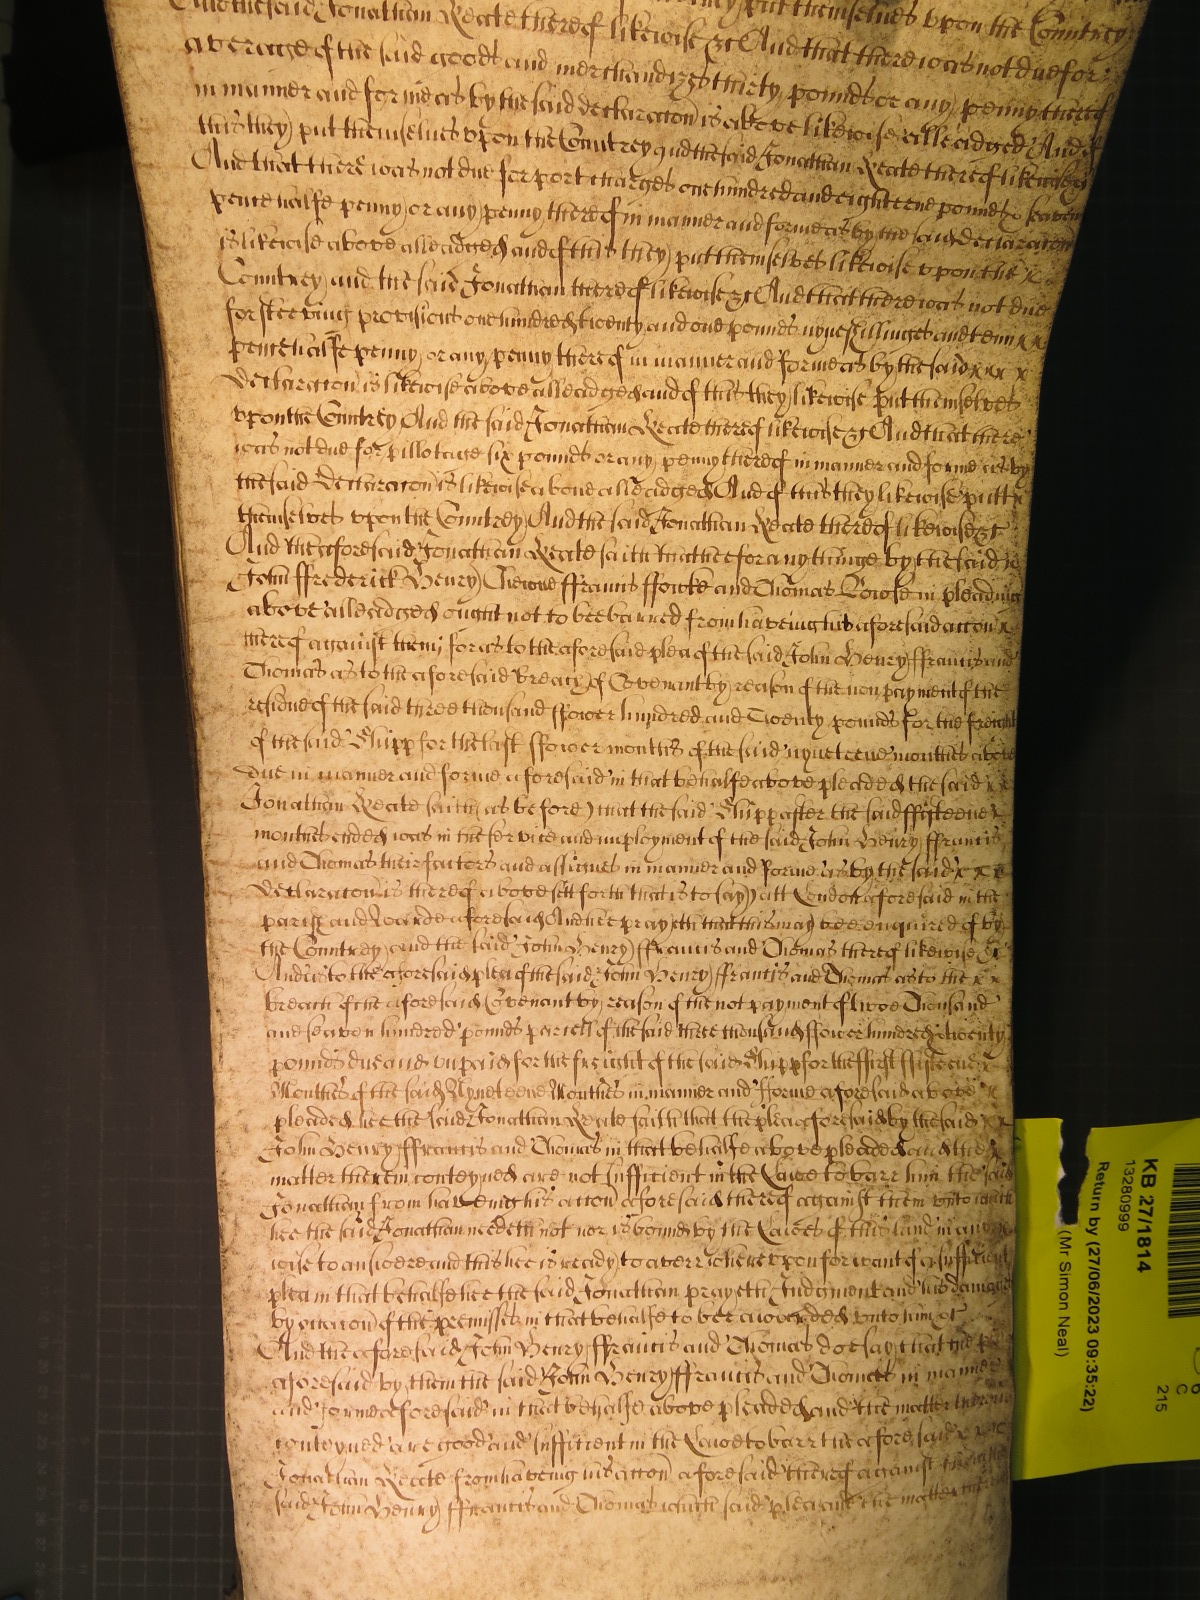 And the said Jonathan Keate thereof likewise &c And that there was not due for
average of the said goods and merchandizes thirty pounds or any penny thereof
in manner and forme as by the said declaracon is above likewise alleadged And of
this they put themselves upon the Countrey and the said Jonathan Keate thereof likewise &c
And that there was not due for port charges one hundred and eighteene pounds seaven
pence halfe penny or any penny thereof in manner and forme as by the said declaracon
is likewise above alleadged and of this they put themselves likewise upon the x
Countrey and the said Jonathan thereof likewise &c And that there was not due
for provisions one hundred & twenty and one pounds nyne shillinges and tenn x x
pence halfe penny or any penny thereof in manner and forme as by the said x x x x
declaracon is likewise above alleadged and of this they likewise put themselves
upon the Countrey And the said Jonathan Keate thereof likewise &c And that there
was not due for pillotage six pounds or any penny thereof in manner and forme as by
the said declaracon is likewise above alleadged And of this they likewise putt x
themselves upon the Countrey And the said Jonathan Keate thereof likewise &c
And the aforesaid Jonathan Keate saith that hee for any thinge by the said x
John ffrederick Henry ffrancis and Thomas in pleading
above alleadged ought not to bee barred from haveing his aforesaid accon x
thereof against them for as to the aforesaid plea of the said John Henry ffrancis and
Thomas as to the aforesaid breach of Covenant by reason of the non payment of the
residue of the said three thousand ffower hundred and Twenty pounds for the freight
of the said Shipp for the last ffower months of the said nyneteene monthes above
due in manner and forme aforesaid in that behalfe above pleaded the said x x
Jonathan Keate saith (as before) that the said Shipp after the said ffifteene x
monthes ended was in the service and imployment of the said John Henry ffrancis
and Thomas their factors and assignes in manner and forme as by the said x x x
declaracon is thereof above sett forth that is to say att London aforesaid in the
parish and Warde aforesaid And hee prayeth that this may bee enquired of by
the Countrey and the said John Henry ffrancis and Thomas thereof likewise &c
And as to the aforesaid plea of the said John Henry ffrancis and Thomas as to the x x
breach of the aforesaid Covenant by reason of the not payment of twoe Thousand
and seaven hundred pounds parcell of the said three thousand ffower hundred & twenty
pounds due and unpaid for the freight of the said Shipp for the ffirst ffifteene x
Monthes of the said Nyneteene Monthes in manner and fforme aforesaid above x
pleaded hee the said Jonathan Keate saith that the plea aforesaid by the said x x
John Henry ffrancis and Thomas in that behalfe above pleaded and the x
matter therein conteyned are not sufficient in the Lawe to barr him the said
Jonathan from haveing his accon aforesaid thereof against them unto which
hee the said Jonathan needeth not nor is bound by the Lawes of this land in any
wise to answere and this hee is ready to averr wherefore for want of a sufficient
plea in that behalfe hee the said Jonathan prayeth Judgment and his damages
by occacon of the premisses in that behalfe to bee awarded unto him &c
And the aforesaid John Henry ffrancis and Thomas doe say that the plea
aforesaid by them the said John Henry ffrancis and Thomas in manner
and forme aforesaid in that behalfe above pleaded and the matter therein
conteyned are good and sufficient in the Lawe to barr the aforesaid x x x
Jonathan Keate from haveing his accon aforesaid thereof against
said John Henry ffrancis and Thomas which said plea and the matter
KB 27/1814
13280999
Return by (27/06/2023 09:35:22)
(Mr Simon Neal)
215